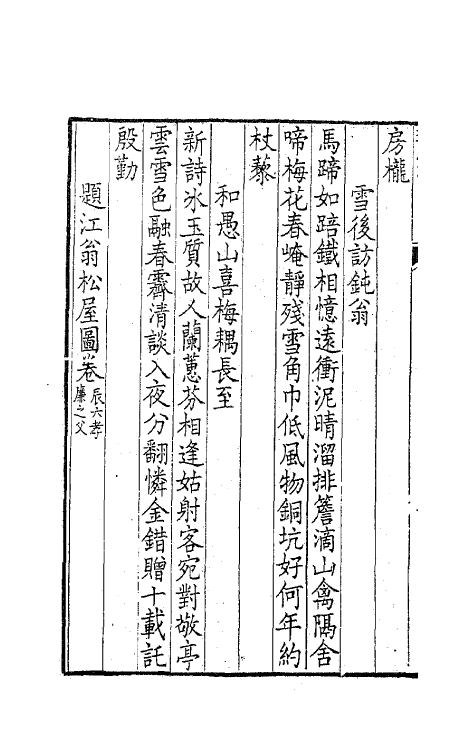 房櫳
雪後訪鈍翁
馬蹄如踣鐵相憶遠衝泥晴溜排簷滴山禽隔舍
啼梅花春崦靜殘雪角巾低風物銅坑好何年約
杖藜
和愚山喜梅耦長至
新詩氷玉質故人蘭蕙芬相逢姑射客宛對敬亭
雲雪色融春霽清談入夜分翻憐金錯贈十載託
殷勤
題江翁松屋圖卷辰六孝廉之父